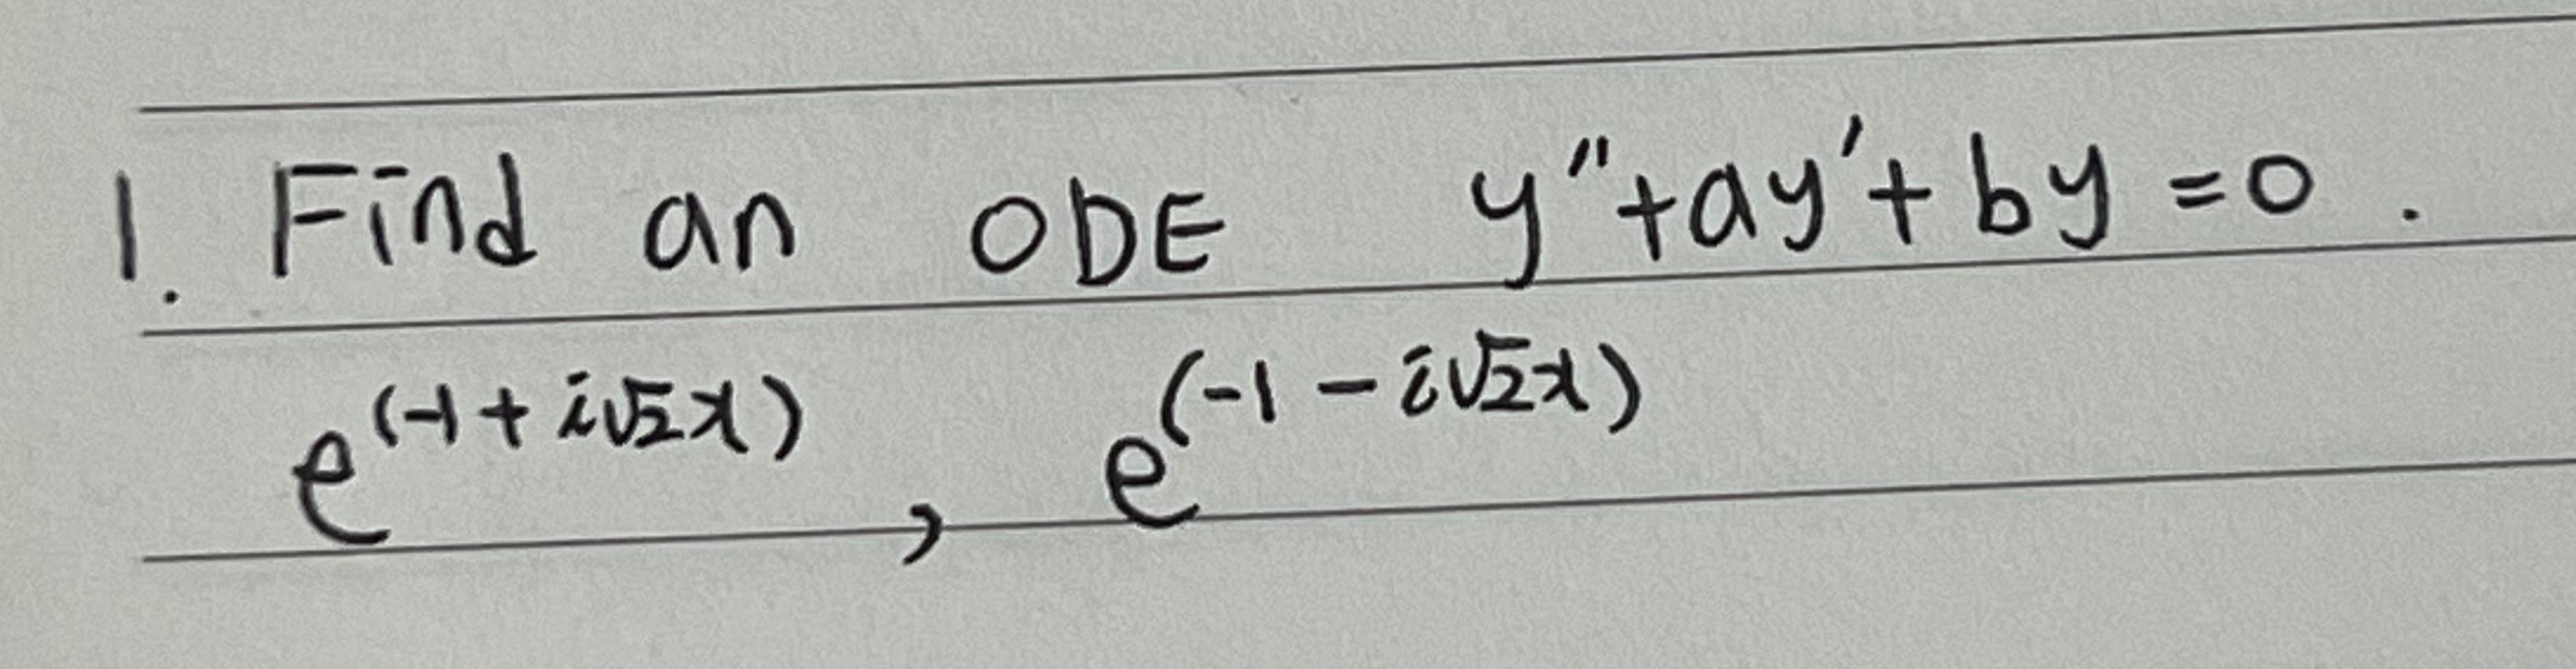 1. Find an ODE y''+ay'+by=0.
e^(-1+i√2x), e^(-1-i√2x)